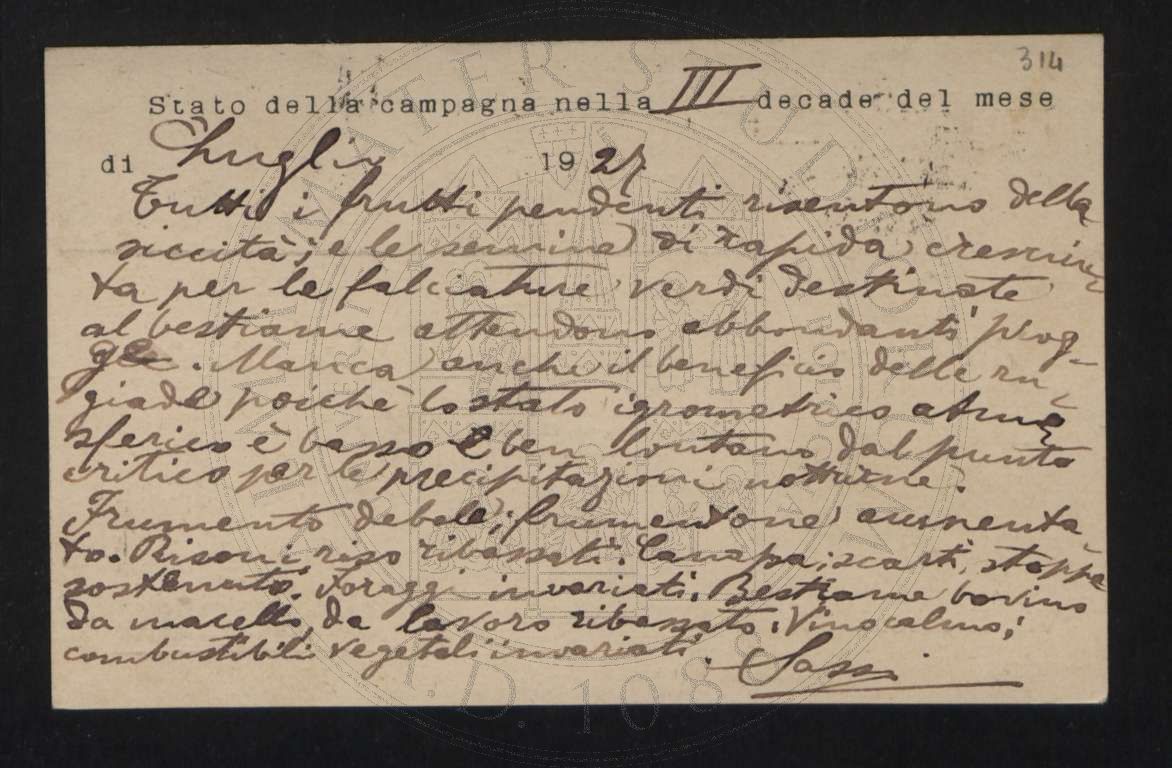 314
Stato della campagna nella III decade del mese
di Luglio 1927
Tutti i frutti pendenti risentono della
siccità; e le semine di rapida crescimen
ta per le falciature verdi destinate
al bestiame attendono abbondanti piog-
ge. Manca anche il beneficio delle ru
giade poichè lo stato igrometrico atmo
sferico è basso e ben lontano dal punto
critico per le precipitazioni notturne.
Frumento debole; frumentone aumenta
to. Risoni riso ribassati. Canapa; scarti, stoppe
sostenuti. Foraggi invariati. Bestiame bovino
da macello, da lavoro ribassato. Vino calmo;
combustibili vegetali invariati. Sassi
ALMA MATER STUDIORUM
A.D. 1088